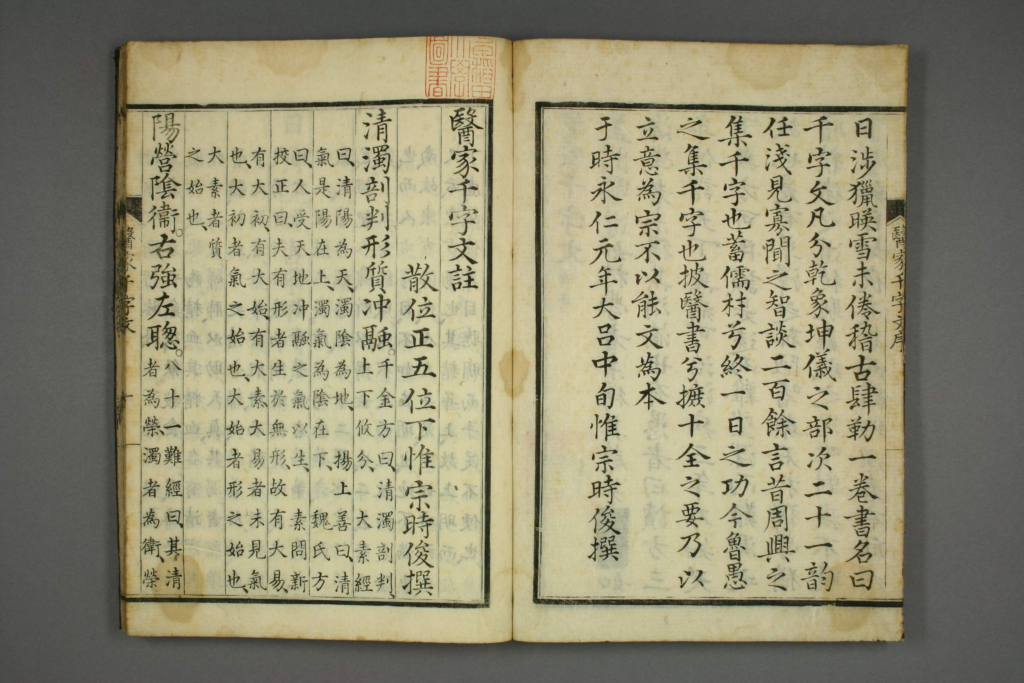 日涉獵暎雪未倦稽古肆勒一卷書名曰
千字文凡分乾象坤儀之部次二十一韵
任淺見寡聞之智談二百餘言昔周興之
集千字也蓄儒材兮終一日之功今魯愚
之集千字也披醫書兮摭十全之要乃以
立意為宗不以能文為本
于時永仁元年大呂中旬惟宗時俊撰
醫家千字文序
醫家千字文註
散位正五位下惟宗時俊撰
清濁剖判形質冲融
千金方曰清濁剖判
上下攸分大素經
曰清陽為天濁陰為地二揚上善曰清
氣是陽在上濁氣為陰在下魏氏方
曰人受天地冲融之氣以生素問新
校正曰夫有形者生於無形故有大易
有大初有大始有大素大易者未見氣
也大初者氣之始也大始者形之始也
大素者質
之始也
陽營陰衞右強左聦
八十一難經曰其清
者為榮濁者為衛榮
醫家千字文